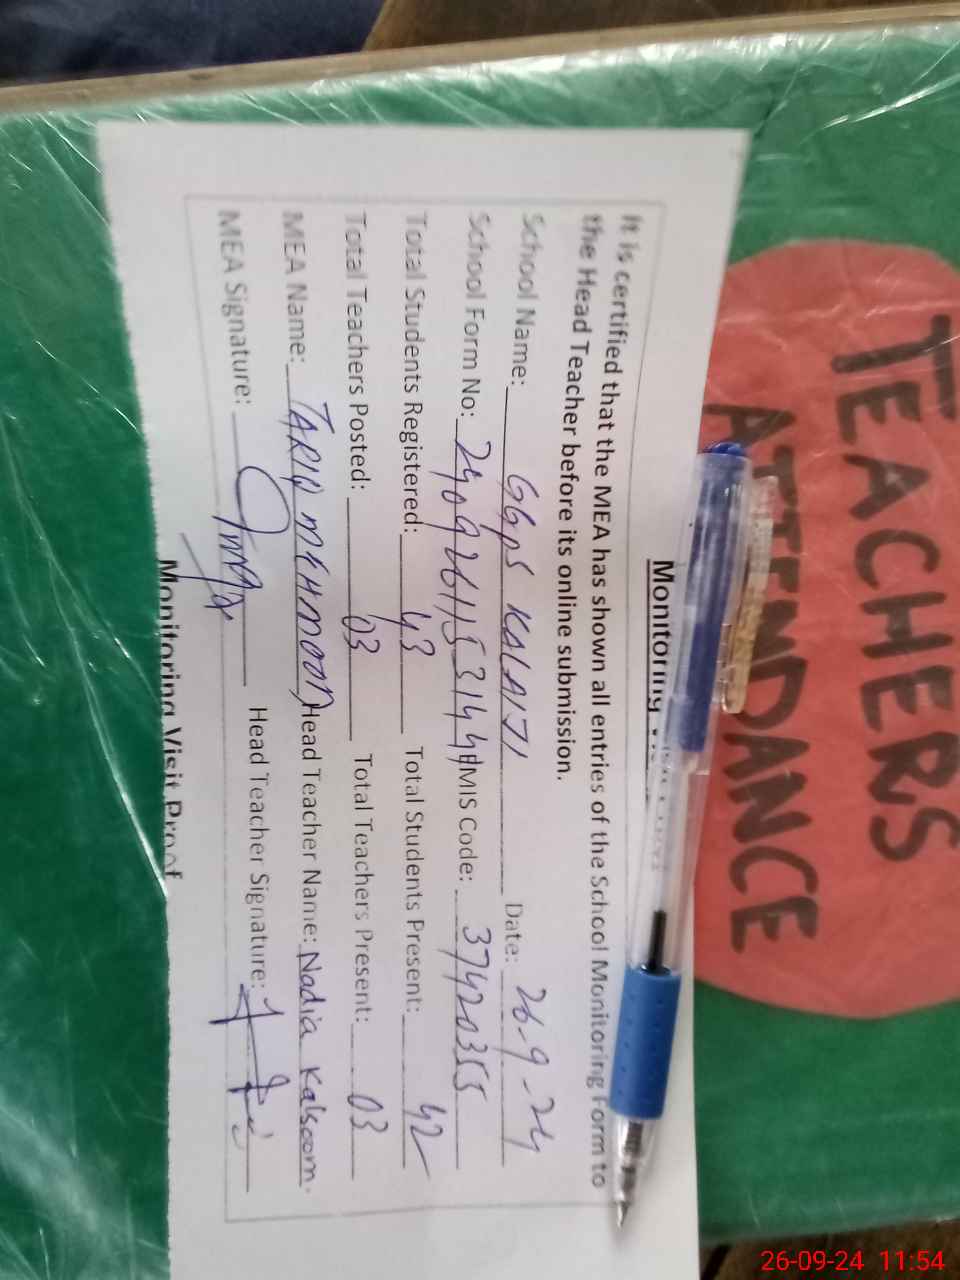 TEACHERS
ATTENDANCE
Monitoring
It is certified that the MEA has shown all entries of the School Monitoring Form to
the Head Teacher before its online submission.
School Name: GGPS KALAIJI Date: 26-9-24
School Form No: 2409261153144 EMIS Code: 37420355
Total Students Registered: 43 Total Students Present: 42
Total Teachers Posted: 03 Total Teachers Present: 03
MEA Name: TARIQ MEHMOOD Head Teacher Name: Nadia Kalsoom.
MEA Signature: Head Teacher Signature:
Monitoring Visit Proof
26-09-24 11:54